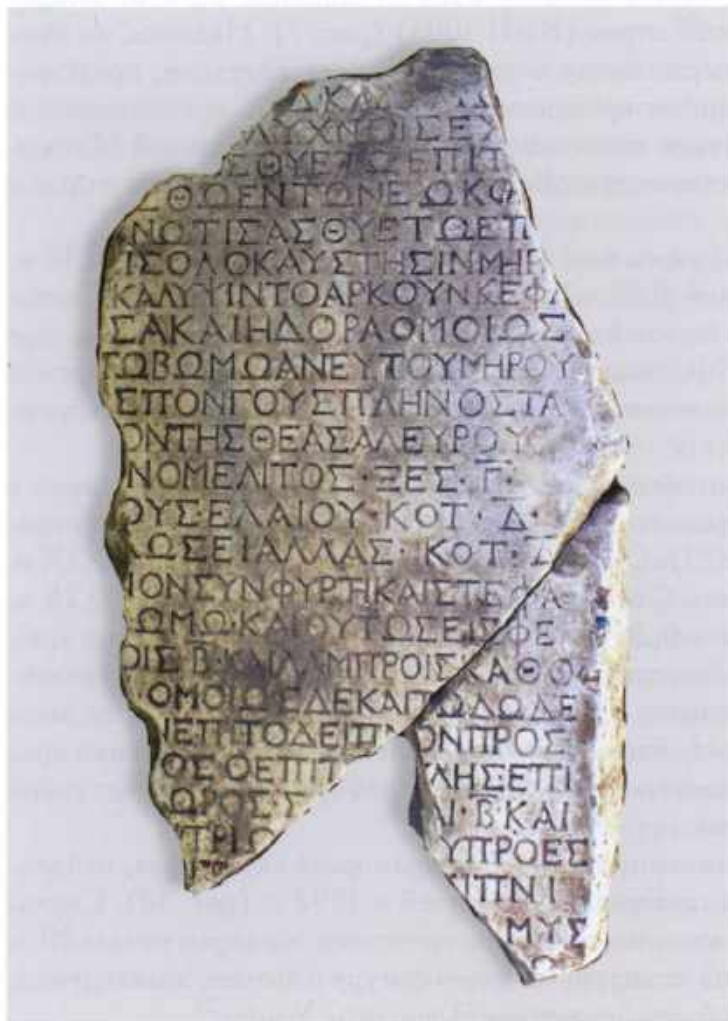 ΔΚΑ
ΛΥΧΝΟΙΣΕΥ
ΣΘΥΕΤΩΕΠΙΤ
ΘΩΕΝΤΩΝΕΩΚΦ
ΝΩΤΙΣΑΣΘΥΕΤΩΕΠ
ΙΣΟΛΟΚΑΥΣΤΗΣΙΝΜΗΡ
ΚΑΛΥΨΙΝΤΟΑΡΚΟΥΝΚΕΦΑ
ΣΑΚΑΙΗΔΟΡΑΟΜΟΙΩΣ
ΤΩΒΩΜΩΑΝΕΥΤΟΥΜΗΡΟΥ
ΣΠΟΝΓΟΥΣΠΛΗΝΟΣΤΑ
ΟΝΤΗΣΘΕΑΣΑΛΕΥΡΟΥ
ΝΟΜΕΛΙΤΟΣ·ΞΕΣ·Γ·
ΟΥΣ·ΕΛΑΙΟΥ·ΚΟΤ·Δ·
ΛΩΣΕΙΑΛΛΑΣ·ΚΟΤ·Δ
ΙΟΝΣΥΝΦΥΡΤΗΚΑΙΣΤΕΦΑ
ΒΩΜΩ·ΚΑΙΟΥΤΩΣΕΙΣΦΕ
ΟΙΣ·Β·ΚΑΙΛΑΜΠΡΟΙΣΚΑΘΟ
ΟΜΟΙΩΣΔΕΚΑΙΤΩΔΩΔΕ
ΙΕΠΙΤΟΔΕΙΠΝΟΝΠΡΟΣ
ΟΣΟΕΠΙΤ ΚΛΗΣ·ΕΠΙ
ΩΡΟΣ·Σ ΑΙ·Β·ΚΑΙ
ΤΡΙΩ ΥΠΡΟΕΣ
ΙΠΝΙ
ΜΥΣ